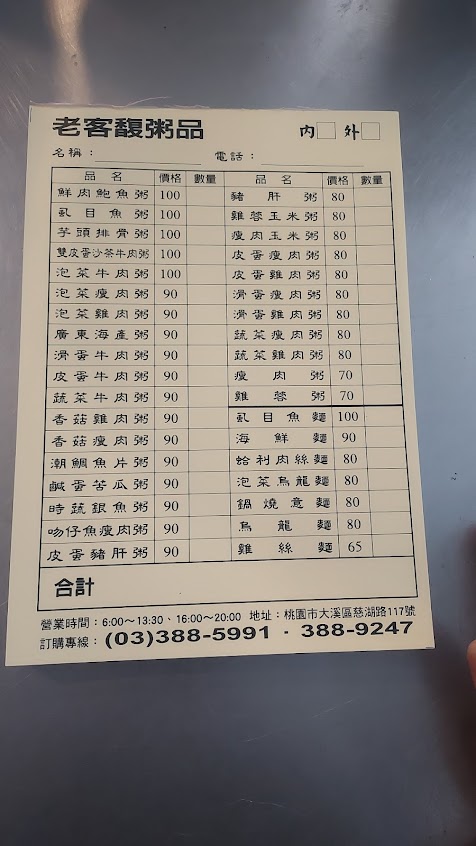 老客馥粥品 內□ 外□
名稱： 電話：
品名 價格 數量 品名 價格 數量
鮮肉鮑魚粥 100 豬肝粥 80
虱目魚粥 100 雞蓉玉米粥 80
芋頭排骨粥 100 瘦肉玉米粥 80
雙皮蛋沙茶牛肉粥 100 皮蛋瘦肉粥 80
泡菜牛肉粥 100 皮蛋雞肉粥 80
泡菜瘦肉粥 90 滑蛋瘦肉粥 80
泡菜雞肉粥 90 滑蛋雞肉粥 80
廣東海產粥 90 蔬菜瘦肉粥 80
滑蛋牛肉粥 90 蔬菜雞肉粥 80
皮蛋牛肉粥 90 瘦肉粥 70
蔬菜牛肉粥 90 雞蓉粥 70
香菇雞肉粥 90 虱目魚麵 100
香菇瘦肉粥 90 海鮮麵 90
潮鯛魚片粥 90 蛤利肉絲麵 80
鹹蛋苦瓜粥 90 泡菜烏龍麵 80
時蔬銀魚粥 90 鍋燒意麵 80
吻仔魚瘦肉粥 90 烏龍麵 80
皮蛋豬肝粥 90 雞絲麵 65
合計
營業時間：6:00～13:30、16:00～20:00 地址：桃園市大溪區慈湖路117號
訂購專線：(03)388-5991 · 388-9247